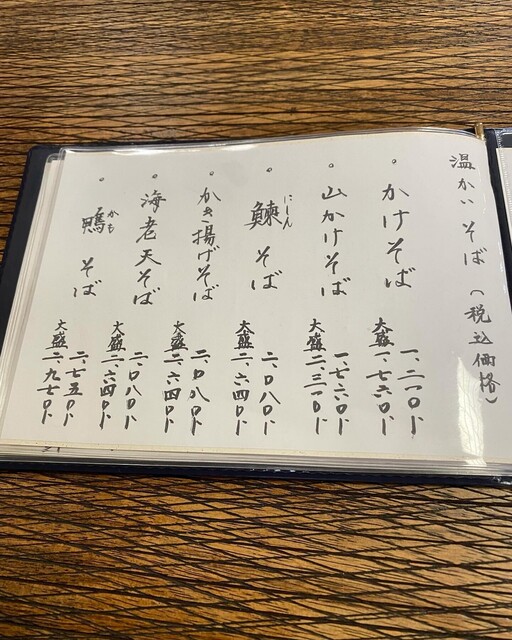 温かいそば(税込価格)
。かけそば
一、二一〇円
大盛一、七六〇円
。山かけそば
一、七六〇円
大盛二、三一〇円
。鰊そば
にしん
二、〇八〇円
大盛二、六四〇円
。かき揚げそば
二、〇八〇円
大盛二、六四〇円
。海老天そば
二、〇八〇円
大盛二、六四〇円
。鴨そば
かも
二、七五〇円
大盛二、九七〇円